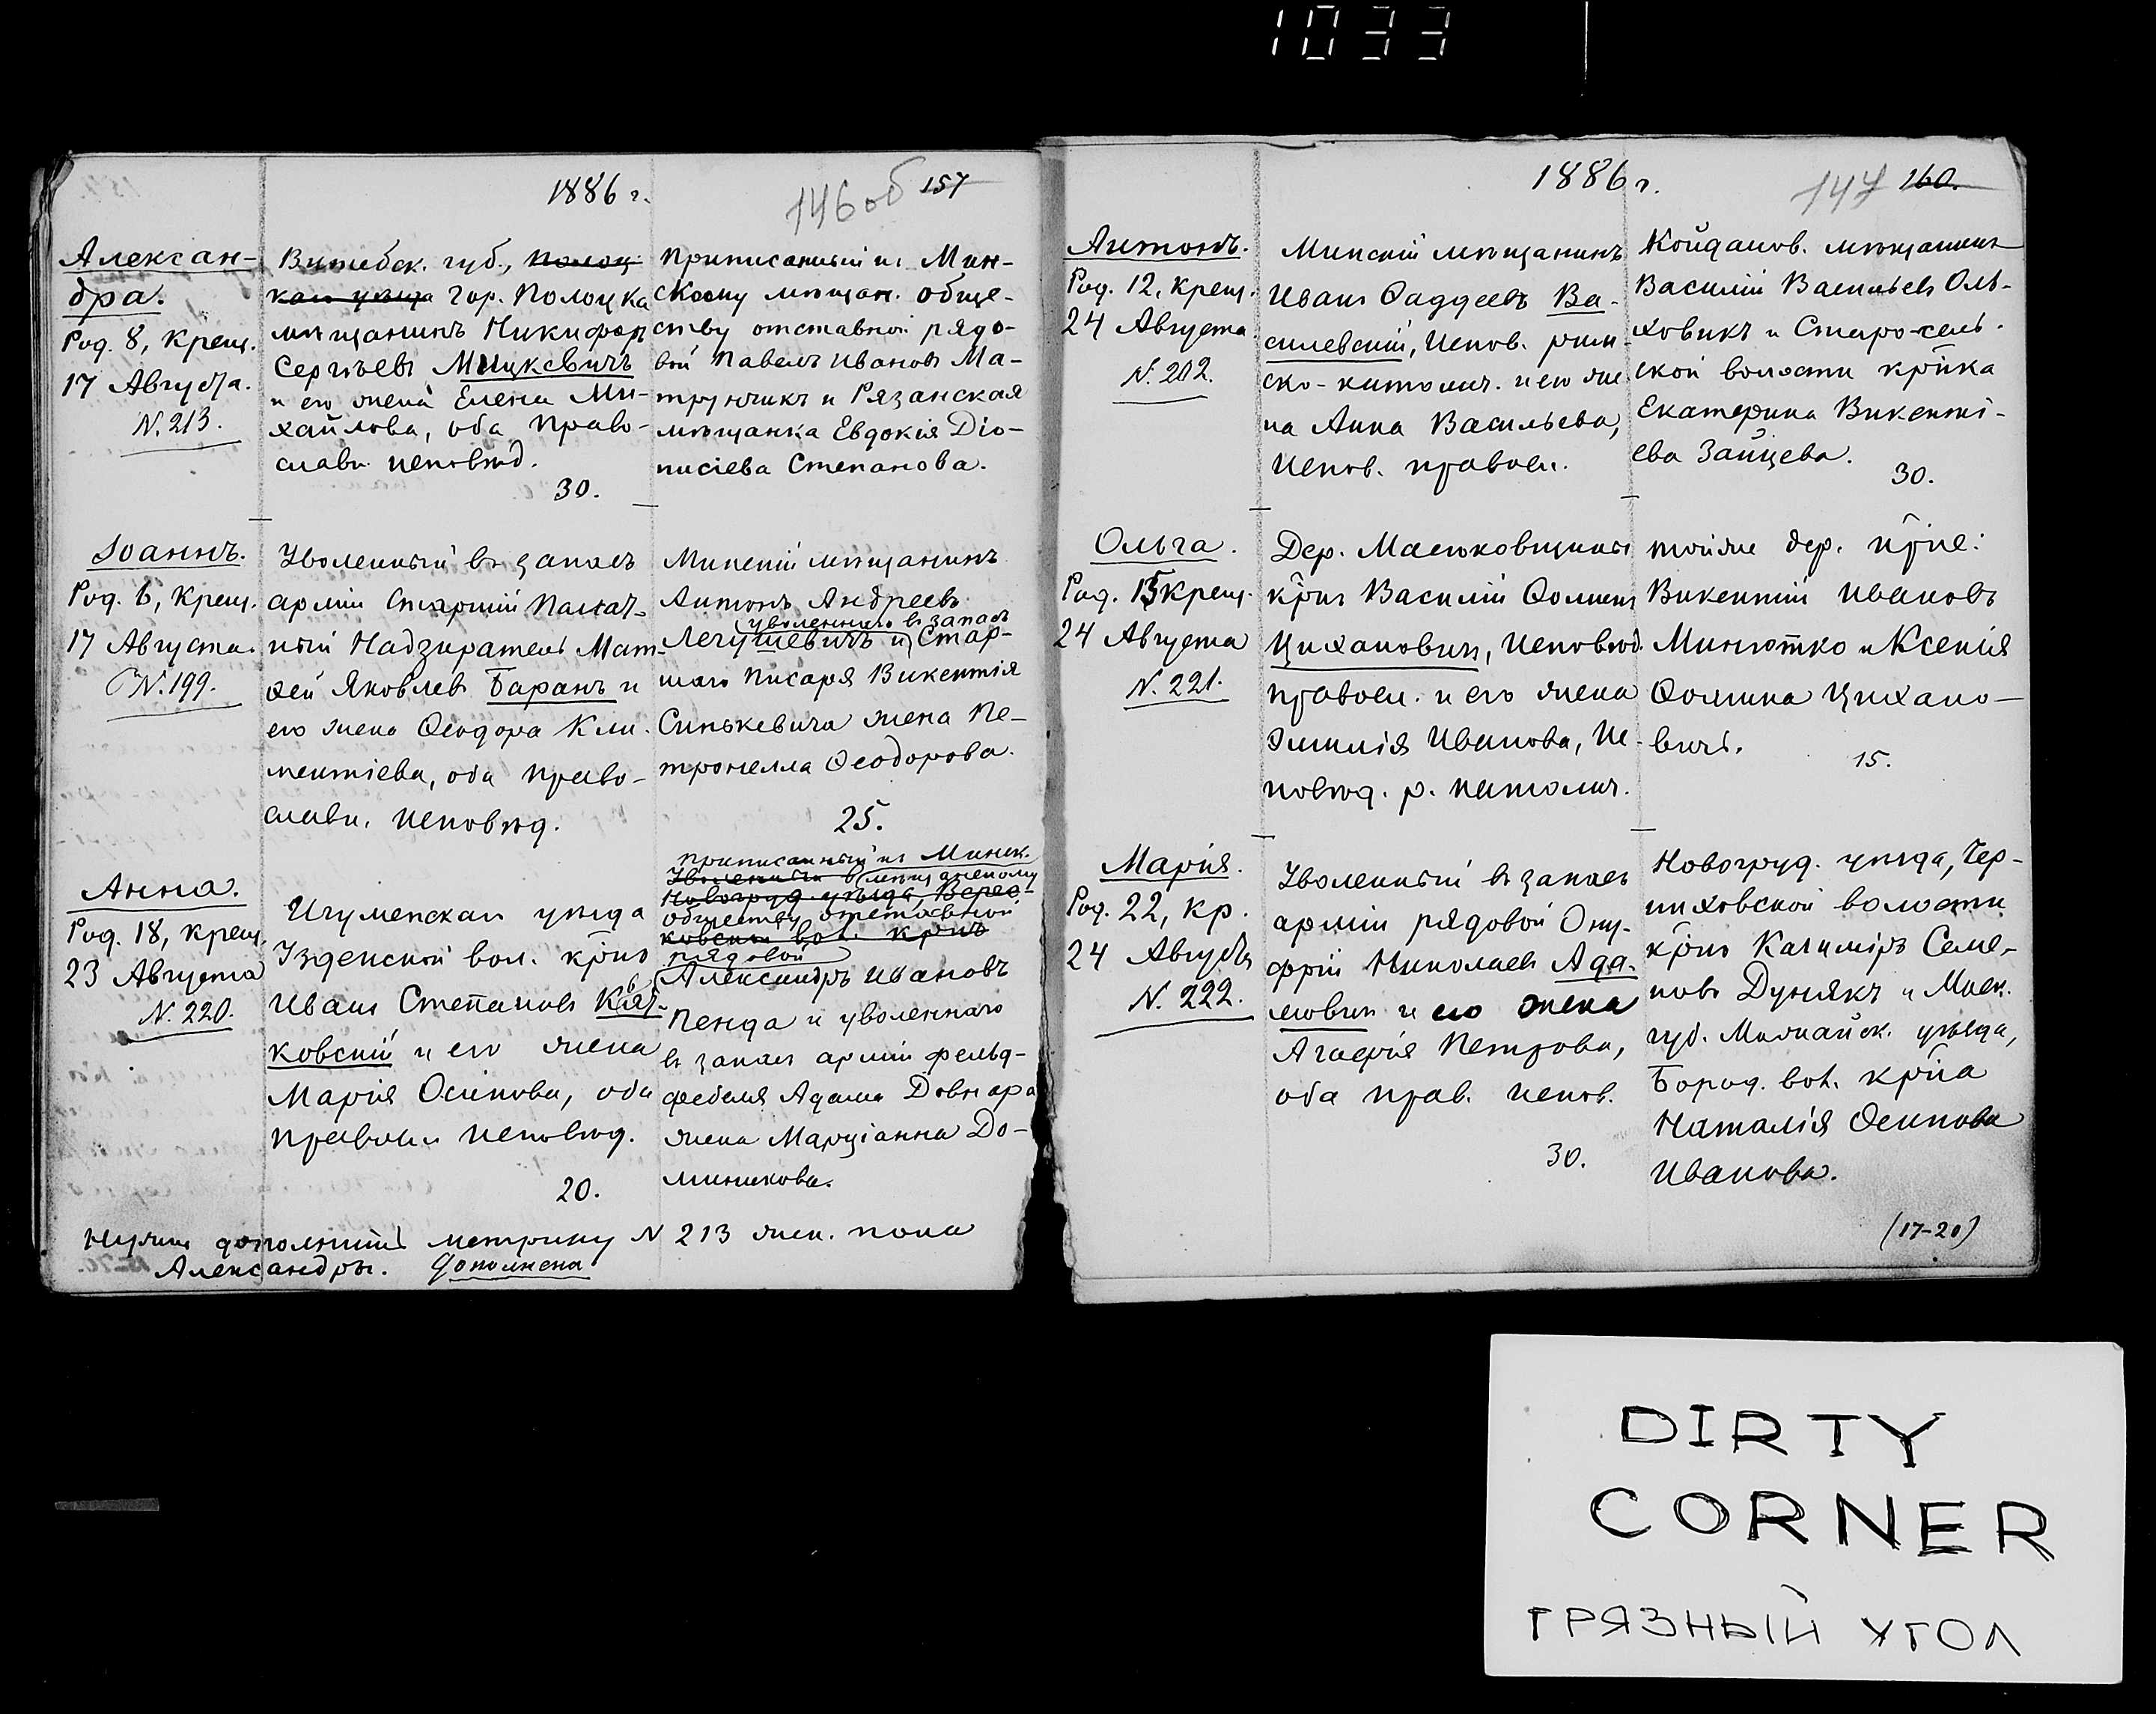 1033
1886 г.
146 об 157
Алексан-
дра.
Род. 8, крещ.
17 Августа.
N. 213.
Витебск. губ., Полоц-
каго уѣзда гор. Полоцка
мѣщанинъ Никифоръ
Сергѣевъ Мицкевичъ
и его жена Елена Ми-
хайлова, оба право-
славн. исповѣд.
30.
Приписанный къ Мин-
скому мѣщан. обще-
ству отставной рядо-
вой Павелъ Ивановъ Ма-
трунчикъ и Рязанская
мѣщанка Евдокія Діо-
нисіева Степанова.
Іоаннъ.
Род. 6, крещ.
17 Августа.
N. 199.
Уволенный въ запасъ
арміи старшій
Надзиратель Мат-
ѳей Яковлевъ Баранъ и
его жена Ѳеодора Кли-
ментіева, оба право-
славн. исповѣд.
Минскій мѣщанинъ
Антонъ Андреевъ
уволеннаго въ запасъ
Лечушевичъ и Стар-
шаго писаря Викентія
Синькевича жена Пе-
тронелла Ѳеодорова.
25.
Анна.
Род. 18, крещ.
23 Августа
N. 220.
Игуменскаго уѣзда
Узденской вол. крнъ
Иванъ Степановъ
ковскій и его жена
Марія Осипова, оба
правосл. исповѣд.
20.
приписанный къ Минск.
Уволенный въ мѣщанскому
Новогруд. уѣзда, Верес-
обществу отставной
ковской вол. крнъ
рядовой
Александръ Ивановъ
Пенда и уволеннаго
въ запасъ арміи фельд-
фебеля Адама Довнара
жена Марціанна До-
миникова.
Нужно дополнить метрику N 213 жен. пола
Александры. Дополнена
1886 г.
147 160.
Антонъ.
Род. 12, крещ.
24 Августа
N. 202.
Минскій мѣщанинъ
Иванъ Ѳаддеевъ Ва-
силевскій, испов. рим-
ско-католич. и его же-
на Анна Васильева,
испов. правосл.
Койданов. мѣщанинъ
Василій Васильевъ Оль-
ховикъ и Старо-сель-
ской волости крнка
Екатерина Викенті-
ева Зайцева.
30.
Ольга.
Род. 15 крещ.
24 Августа
N. 221.
Дер. Масюковщины
крнъ Василій Ѳоминъ
Цихановичъ, исповѣд.
правосл. и его жена
Эмилія Иванова, ис-
повѣд. р. католич.
тойже дер. крне:
Викентій Ивановъ
Минютко и Ксенія
Ѳомина Цихано-
вичъ.
15.
Марія.
Род. 22, кр.
24 Августа
N. 222.
Уволенный въ запасъ
арміи рядовой Ону-
фрій Николаевъ Ада-
мовичъ и его жена
Агафія Петрова,
оба прав. испов.
30.
Новогруд. уѣзда, Чер-
ниховской волости
крнъ Казиміръ Семе-
новъ Дунякъ и Моск.
губ. Можайск. уѣзда,
Бород. вол. крнка
Наталія Осипова
Иванова.
(17-20)
DIRTY
CORNER
ГРЯЗНЫЙ УГОЛ